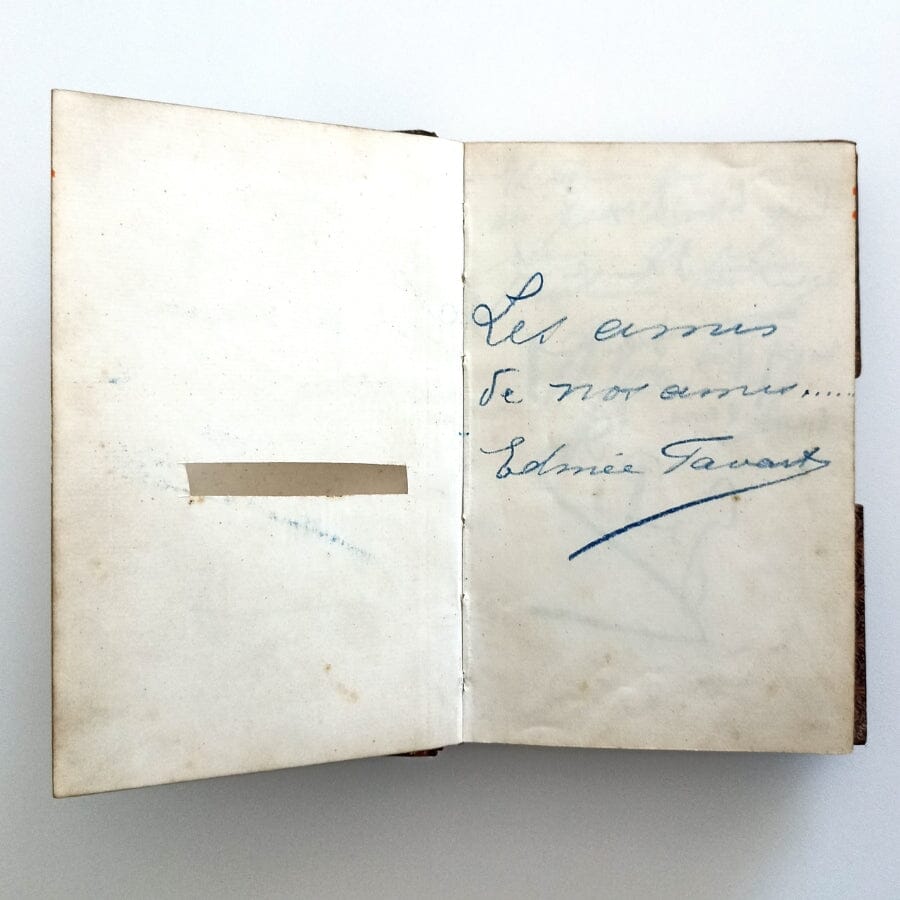 Les amis
de nos amis......
Edmée Favart